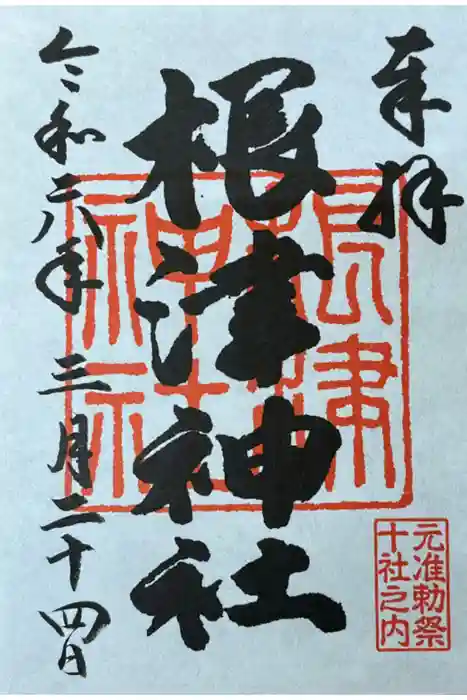 奉拝
根津神社
根津神社
元准勅祭
十社之内
令和六年三月二十四日